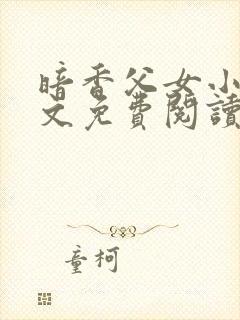 暗香父女小
文免費閱讀
童柯